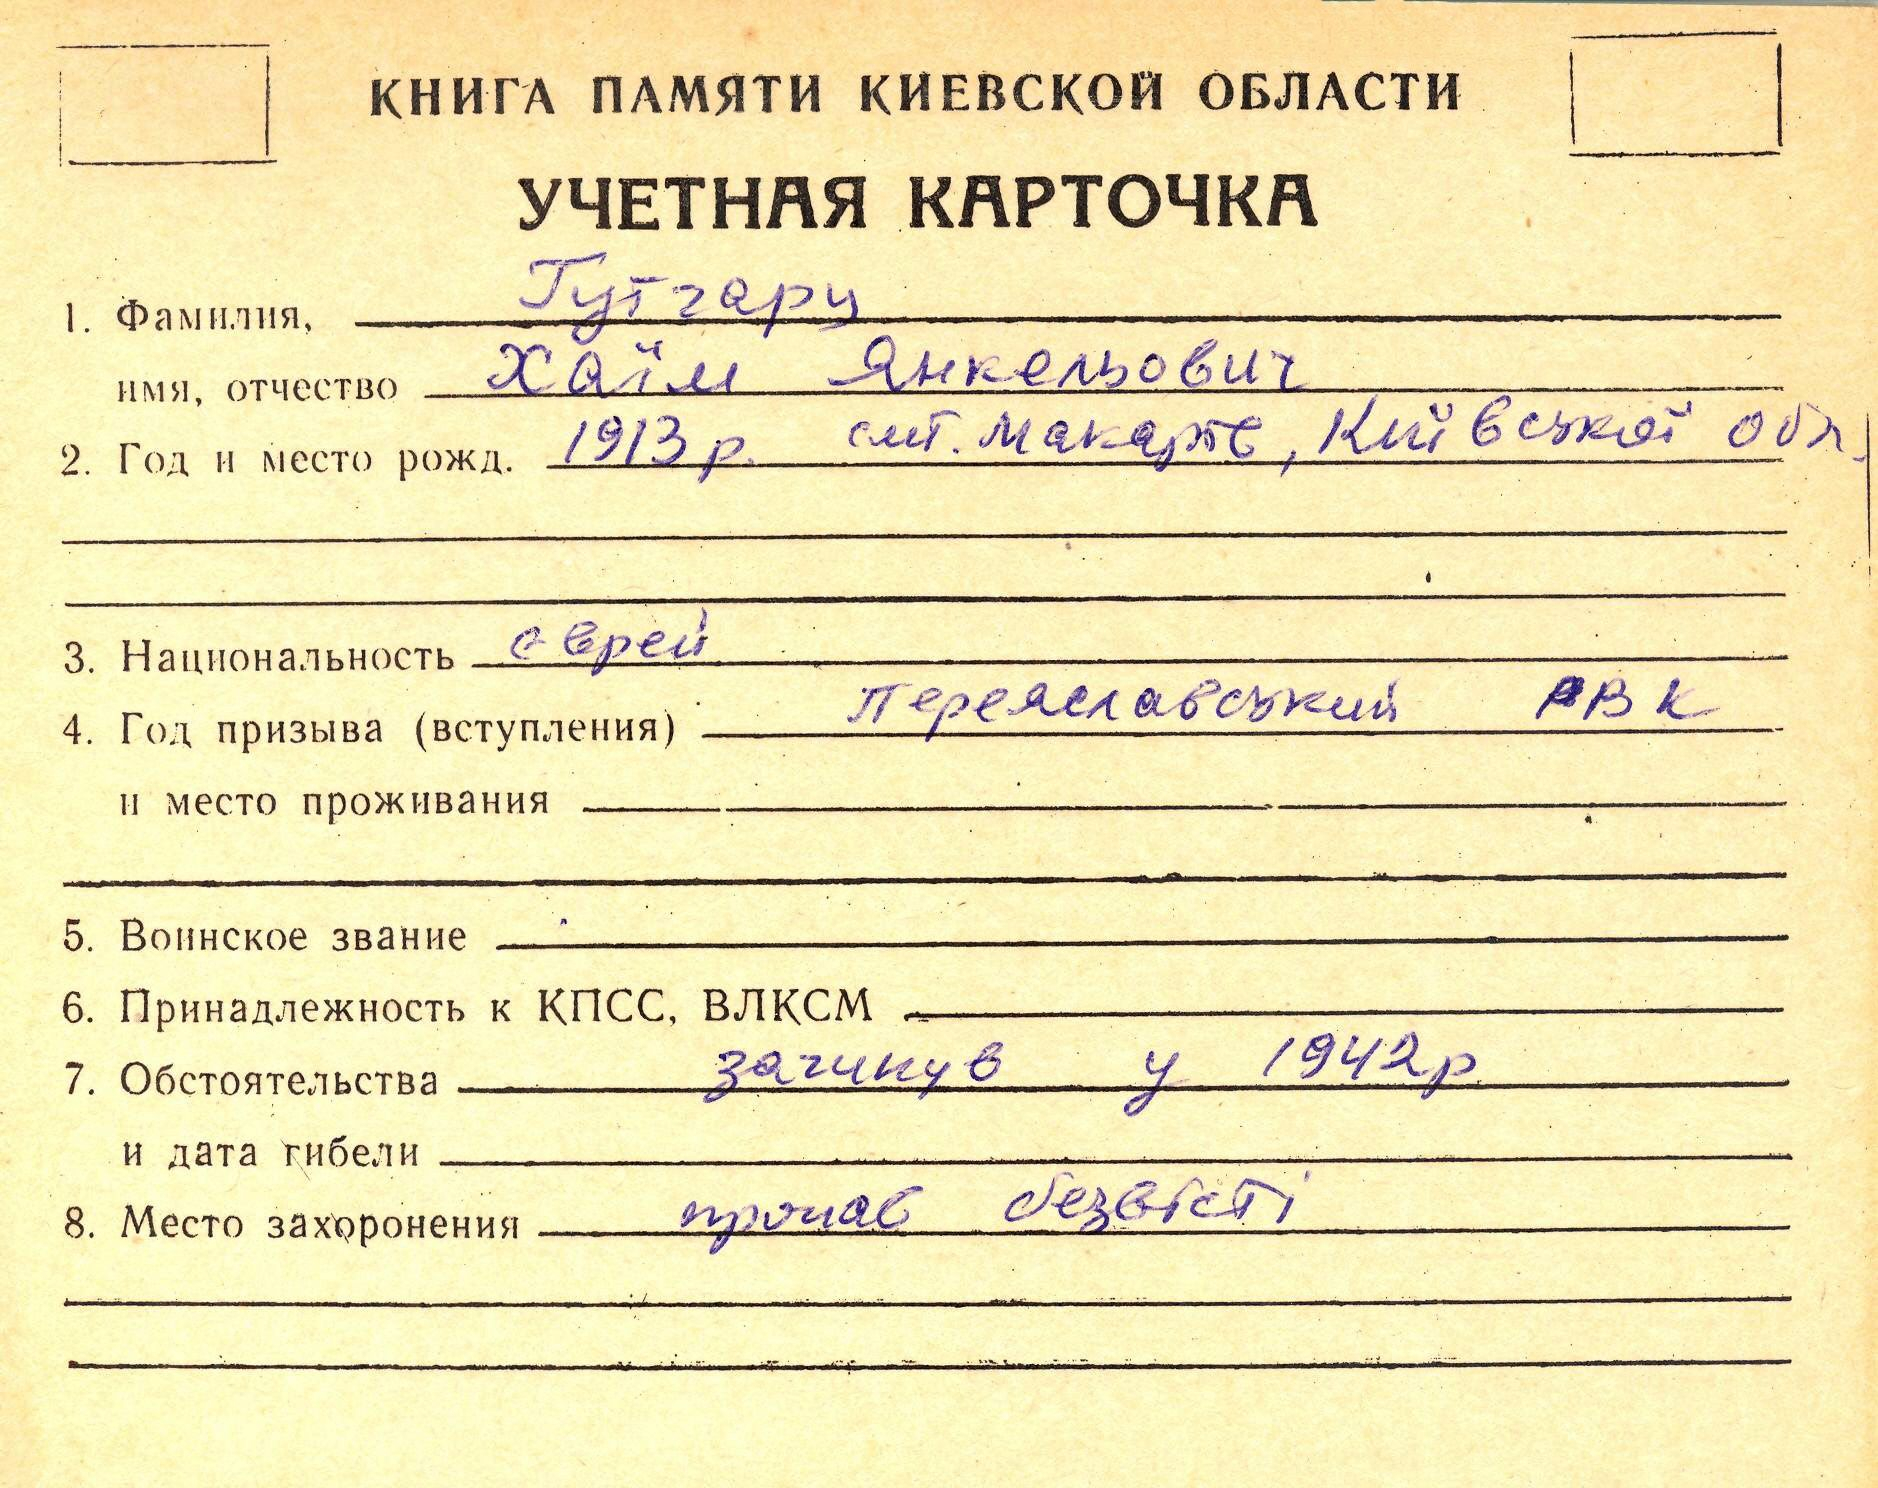 КНИГА ПАМЯТИ КИЕВСКОЙ ОБЛАСТИ
УЧЕТНАЯ КАРТОЧКА
1. Фамилия, Гутгарц
имя, отчество Хаїм Янкельович
2. Год и место рожд. 1913 р. смт. Макарів, Київської обл.
3. Национальность єврей
4. Год призыва (вступления) Переяславський РВК
и место проживания
5. Воинское звание
6. Принадлежность к КПСС, ВЛКСМ
7. Обстоятельства загинув у 1942 р
и дата гибели
8. Место захоронения пропав безвісті